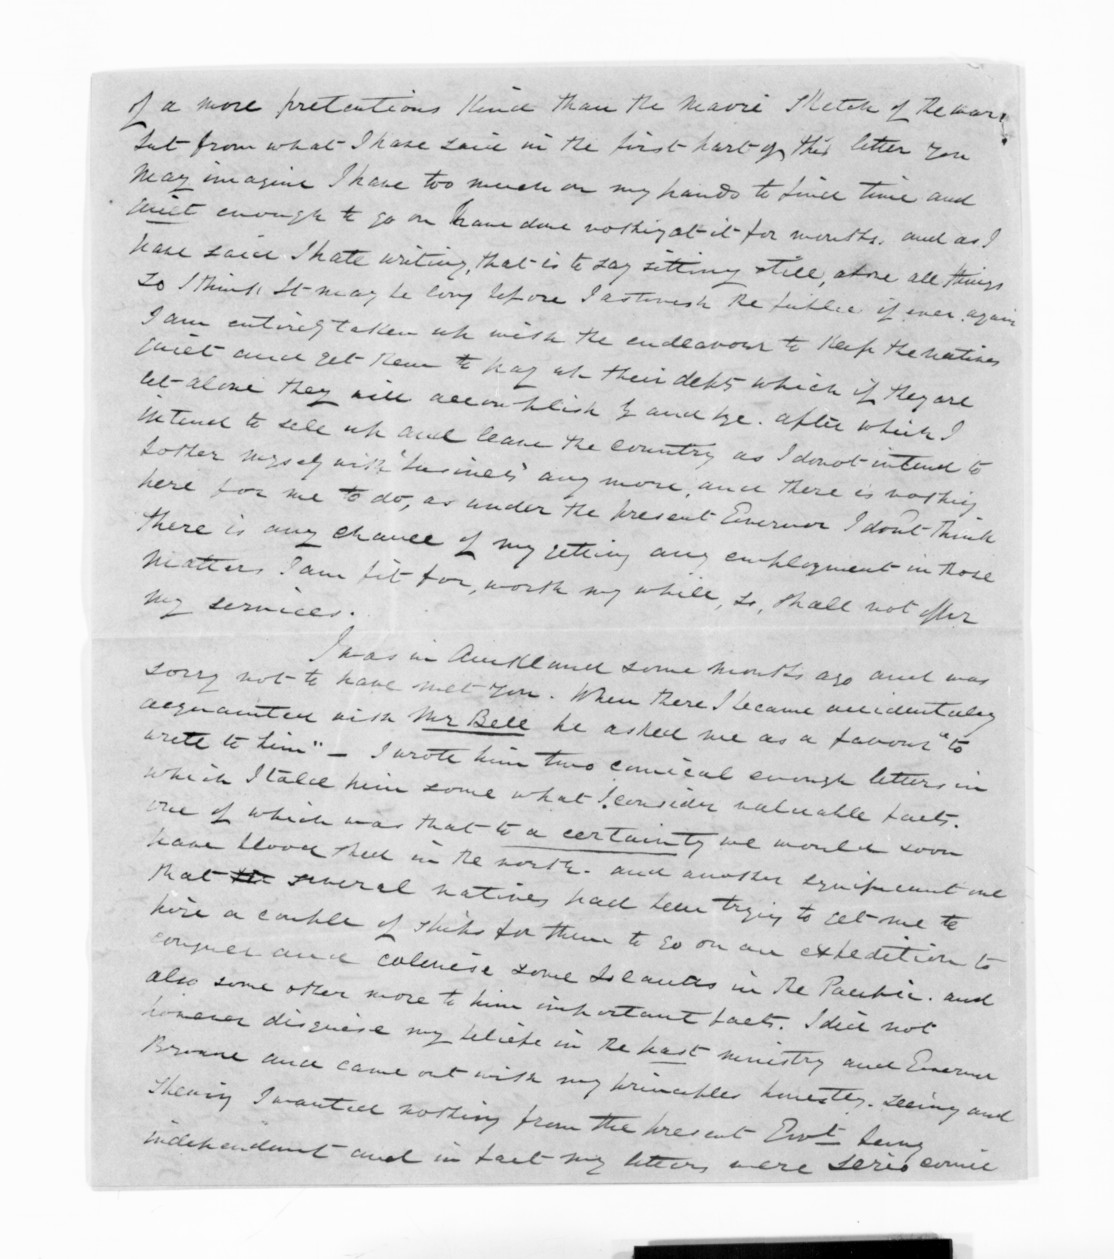 of a more pretentious kind than the Maori sketch of the war.
but from what I have said in the first part of this letter you
may imagine I have too much on my hands to find time and
quiet enough to go on I have done nothing at it for months. and as I
have said I hate writing, that is to say sitting still, above all things
so I think it may be long before I astonish the public if ever again
I am entirely taken up with the endeavour to keep the natives
quiet and get them to pay up their debts which if they are
let alone they will accomplish by and bye. after which I
intend to sell up and leave the country as I do not intend to
bother myself with "business" any more, and there is nothing
here for me to do, as under the present Governor I dont think
there is any chance of my getting any employment in those
matters I am fit for, worth my while, so, shall not offer
my services.
I was in Auckland some months ago and was
sorry not to have met you. When there I became accidentaly
acquainted with Mr Bell he asked me as a favour "to
write to him" — I wrote him two comical enough letters in
which I told him some what I consider valuable facts.
one of which was that to a certainty we would soon
have blood shed in the north. and another significant one
that several natives had been trying to get me to
hire a couple of ships for them to go on an expedition to
conquer and colonise some Islands in the Pacific. and
also some other more to him important facts. I did not
however disguise my beliefe in the past ministry and Governor
Browne and came out with my principles honestly. seeing and
shewing I wanted nothing from the present Govt. being
independant and in fact my letters were serio comic